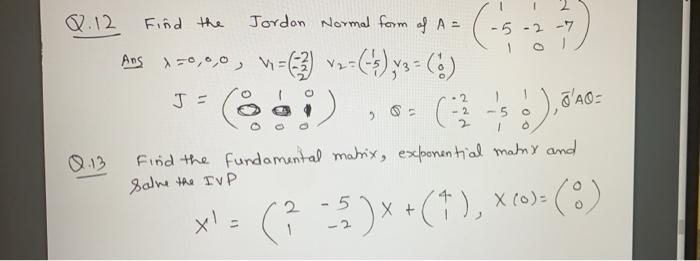 Q.12 Find the Jordan Normal form of A = ( 1 1 2
-5 -2 -7
1 0 1 )
Ans λ=0,0,0, V1=(-2 -2 2) V2=(1 -5 1), V3=(1 0 0)
J = (0 1 0
0 0 1
0 0 0), Q = (-2 1 1
-2 -5 0
2 1 0), Q̄'AQ=
Q.13 Find the fundamental matrix, exponential matrix and
Solve the IVP
x' = (2 -5
1 -2) X + (4 1), X(0) = (0 0)